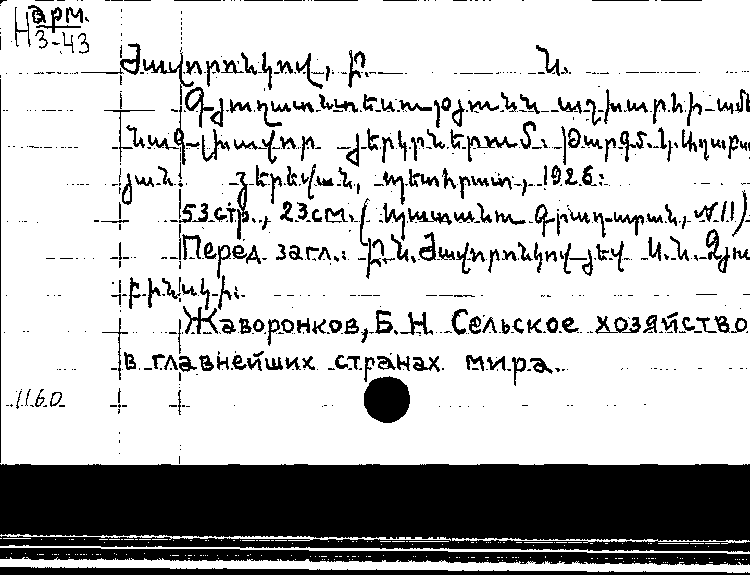 Н арм.
3-43
Ժավորոնկով, Բ. Ն.
Գյուղատնտեսությունն աշխարհի ամե
նագլխավոր յերկրներում: Թարգմ. Ն.
յան: Յերեվան, պետհրատ, 1926:
53 стр., 23 см. (գրադարան, №11)
Перед загл.: Բ. Ն. Ժավորոնկով յեվ Ս. Ն.
Жаворонков, Б. Н. Сельское хозяйство
в главнейших странах мира.
1160